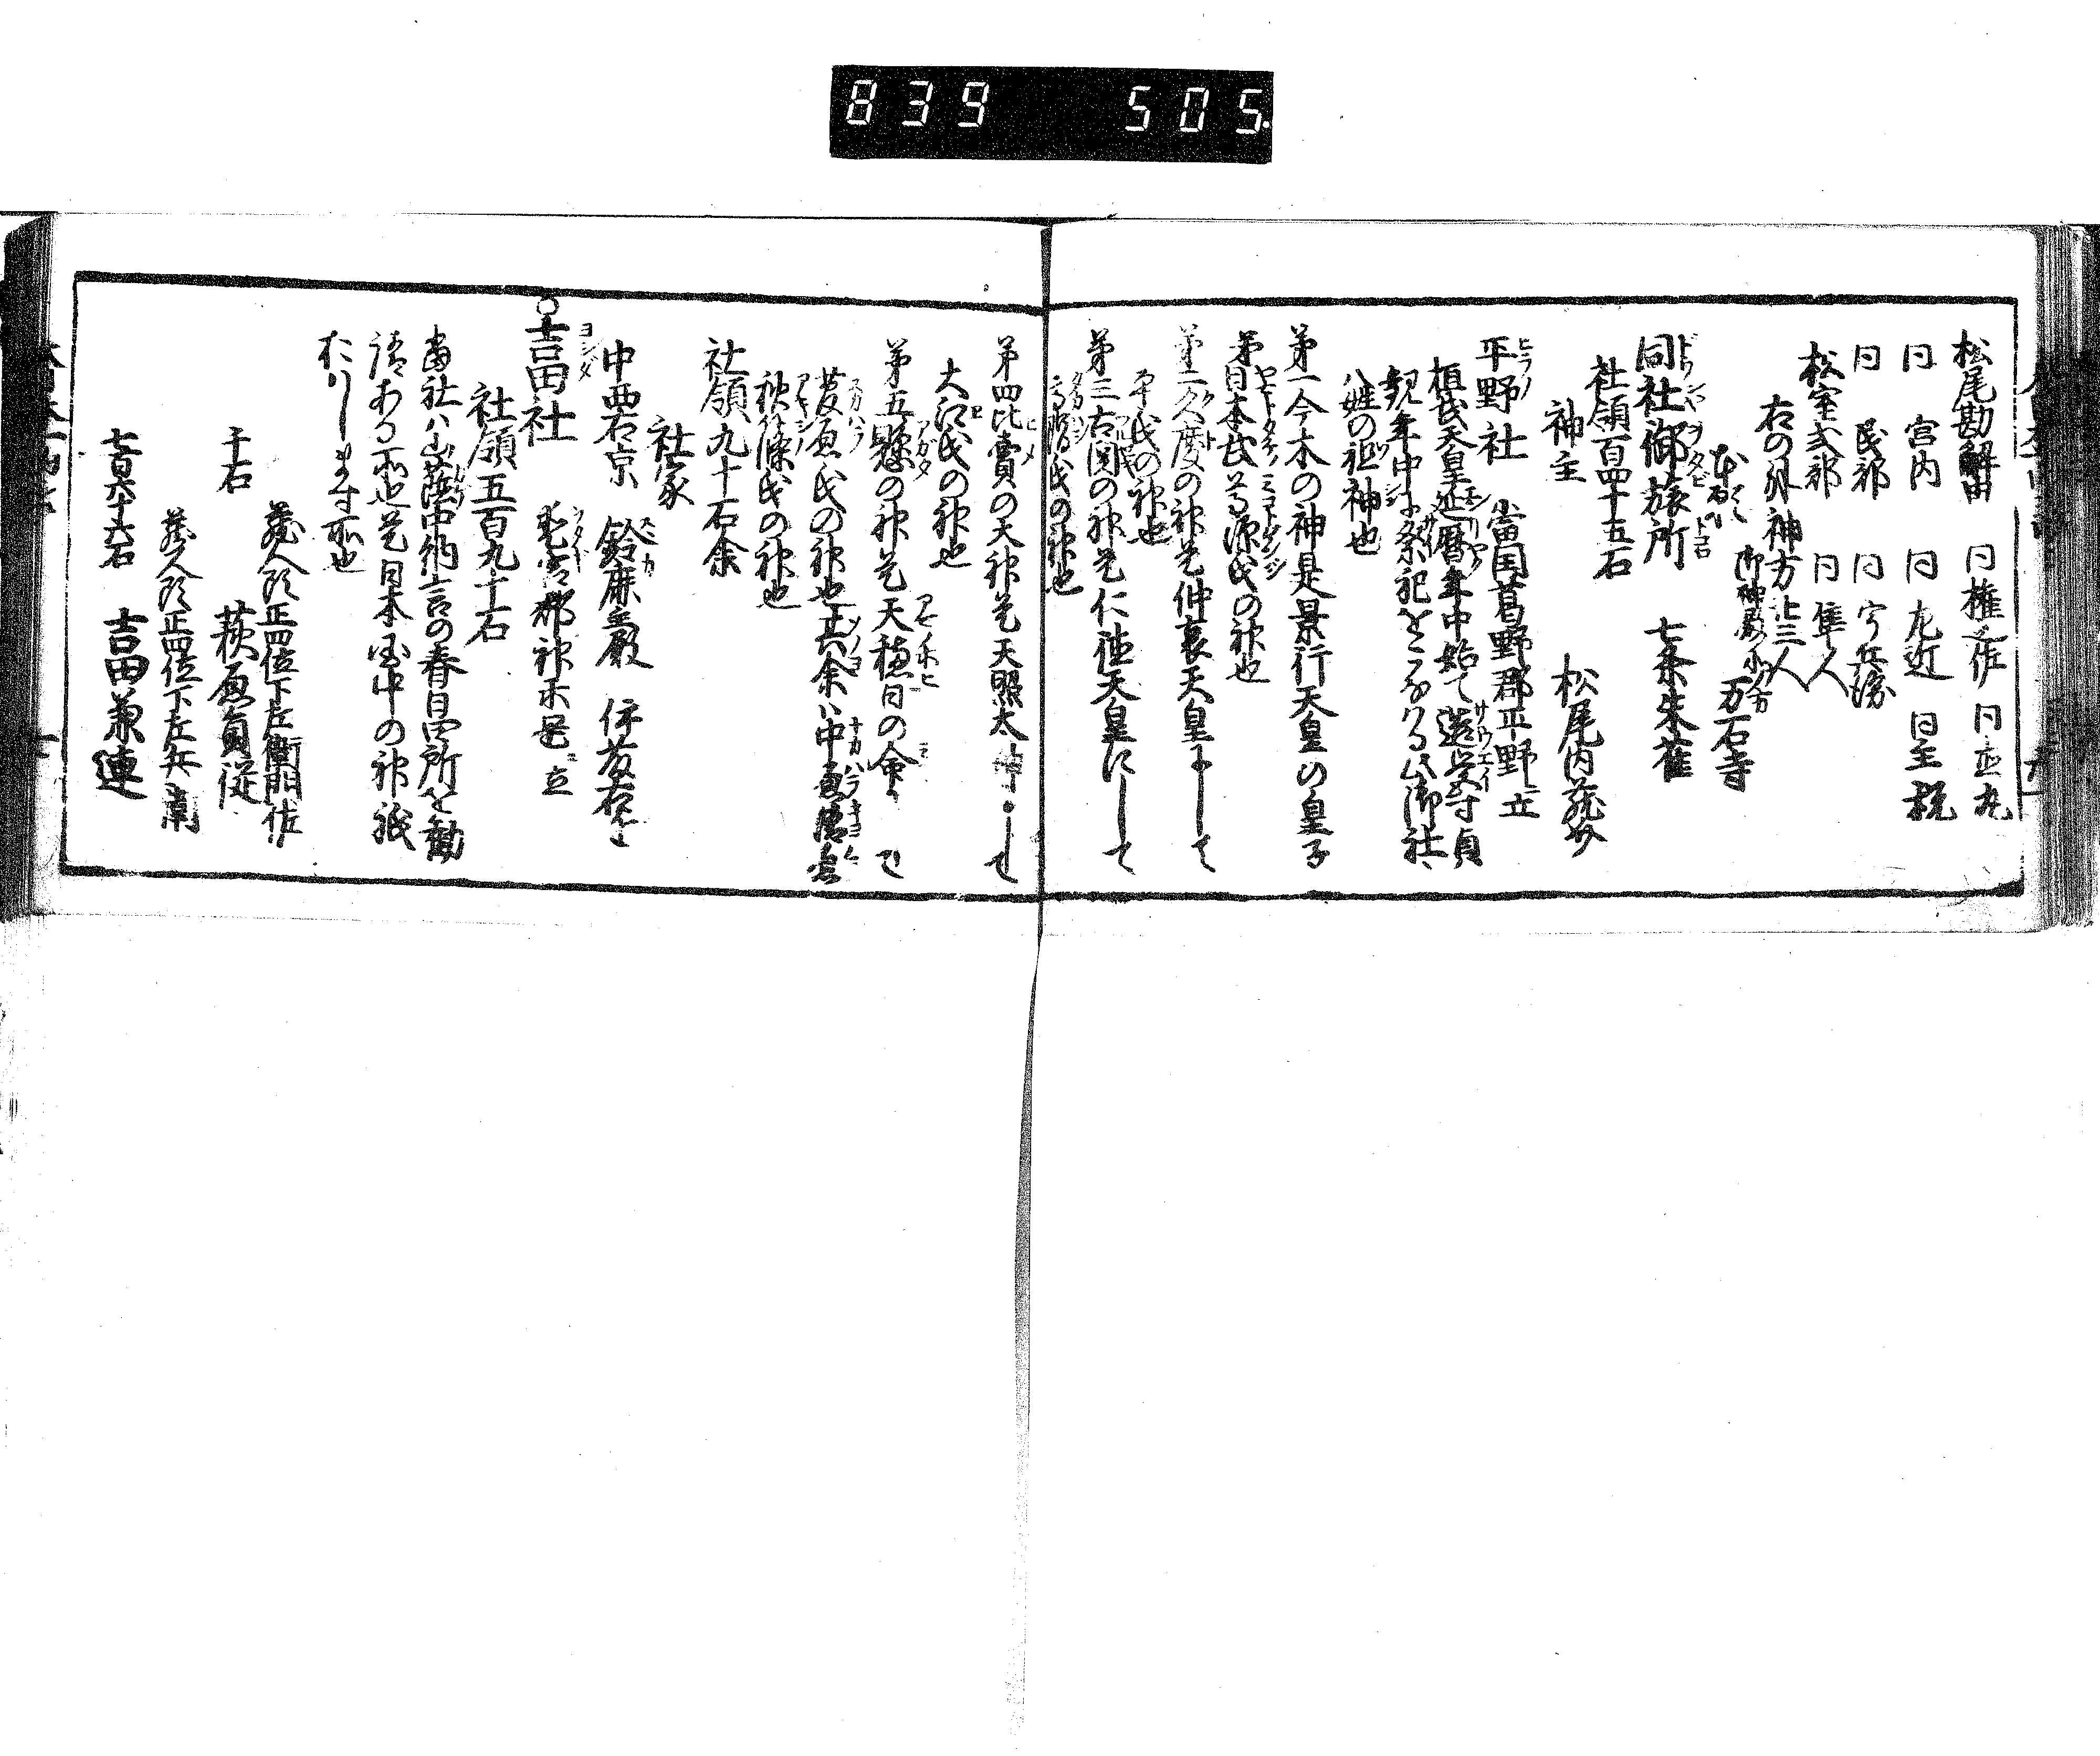 839 505
松尾勘解由 同権之佐 同
同 宮内 同左近 同主税
同 民部 同
松室式部 同隼人
右の外神方 三人
同社御旅所 七条朱雀
社領百四十五石
神主 松尾内蔵
平野社 当国葛野郡平野ニ立
桓武天皇延暦年中始て造営す貞
観年中に祭祀をこなハる此御社
八姓の祖神也
第一今木の神是景行天皇の皇子
日本武尊源氏の神也
第二久度の神是仲哀天皇にして
平氏の神也
第三古関の神是仁徳天皇にして
高階氏の神也
第四比売の天神是天照太神にして
大江氏の神也
第五縣の神是天穂日の命
菅原氏の神也其余ハ中原清原
秋篠氏の神也
社領九十石余
社家
中西右京 鈴鹿主殿 伊藤
○吉田社 愛宕郡神楽岡ニ立
社領五百九十石
当社ハ山蔭中納言の春日四所を勧
請ある所也是日本国中の神祇
おハします所也
蔵人頭正四位下左衛門佐
千石 萩原員従
蔵人頭正四位下左兵衛
七百六十六石 吉田兼連